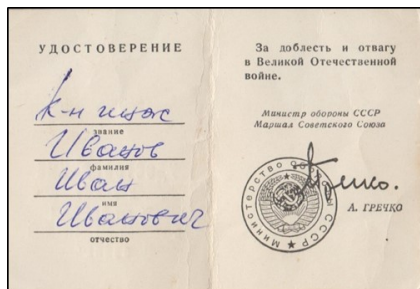 УДОСТОВЕРЕНИЕ
К-н
звание
Иванов
фамилия
Иван
имя
Иванович
отчество
За доблесть и отвагу
в Великой Отечественной
войне.
Министр обороны СССР
Маршал Советского Союза
Министерство обороны СССР
А. ГРЕЧКО